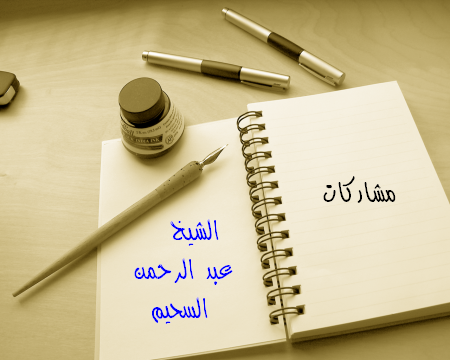 مشاركات
الشيخ
عبد الرحمن
السحيم